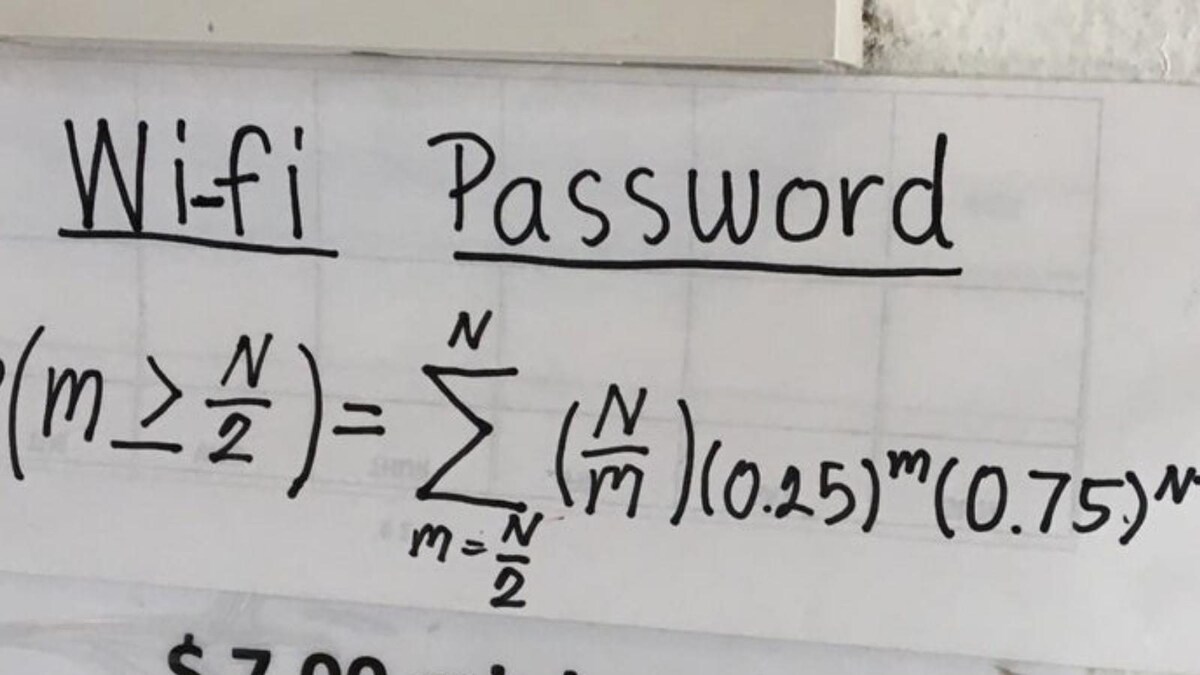 Wi-fi Password
(m ≥ N/2) = ∑_{m=N/2}^{N} (N/m)(0.25)^m(0.75)^N-
$7.00